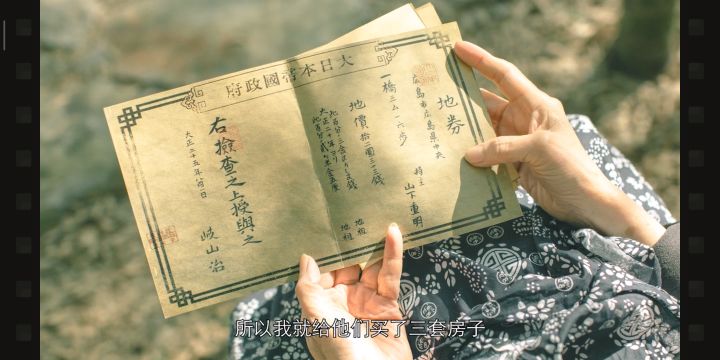 大日本帝國政府
地券
広島市広島県中央
持主 山下重明
一橋三ム一六歩
地價拾二圓三十三錢
地租
地租
右檢查之上授與之
大正二十五年八月一日
岐山治
所以我就给他们买了三套房子